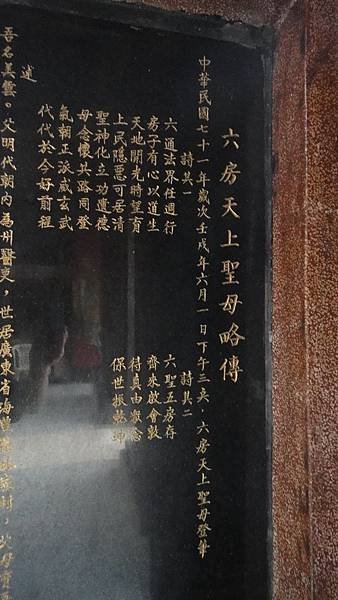 六房天上聖母略傳
中華民國七十一年歲次壬戌年六月一日下午三矣，六房天上聖母登筆
詩其一
六通法界任週行
房子有心以道生
天地開光時望育
上民隱惡可居清
聖神化立功遺德
母念懷共路同登
氣朝正派威玄武
代代於今好前程
詩其二
六聖五房存
齊朱啟會敦
待真由眾念
保世振乾坤
述
吾名美雲。父明代朝內為州醫吏，世居廣東省海豐